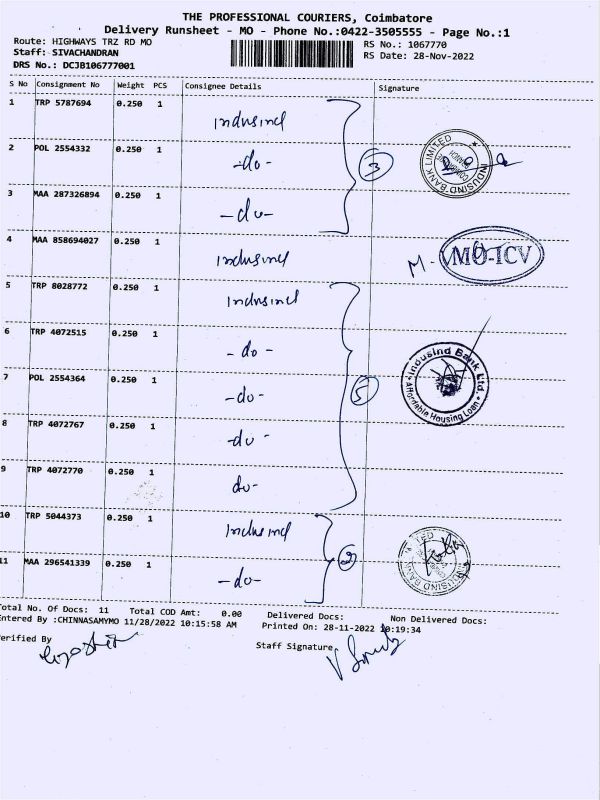 THE PROFESSIONAL COURIERS, Coimbatore
Delivery Runsheet - MO - Phone No.:0422-3505555 - Page No.:1
Route: HIGHWAYS TRZ RD MO
RS No.: 1067770
Staff: SIVACHANDRAN
RS Date: 28-Nov-2022
DRS No.: DCJB106777001
S No Consignment No Weight PCS Consignee Details Signature
1 TRP 5787694 0.250 1
Indusind
2 POL 2554332 0.250 1
-do-
3 MAA 287326894 0.250 1
-do-
3
INDUSIND BANK LIMITED
4 MAA 858694027 0.250 1
Indusind
M. MO-ICV
5 TRP 8028772 0.250 1
Indusind
6 TRP 4072515 0.250 1
-do-
7 POL 2554364 0.250 1
-do-
5
Indusind Bank Ltd.
Affordable Housing Loan
8 TRP 4072767 0.250 1
-do-
9 TRP 4072770 0.250 1
do-
10 TRP 5044373 0.250 1
Indusind
11 MAA 296541339 0.250 1
-do-
2
Total No. Of Docs: 11 Total COD Amt: 0.00 Delivered Docs: Non Delivered Docs:
Entered By :CHINNASAMYMO 11/28/2022 10:15:58 AM Printed On: 28-11-2022 10:19:34
Verified By
Staff Signature